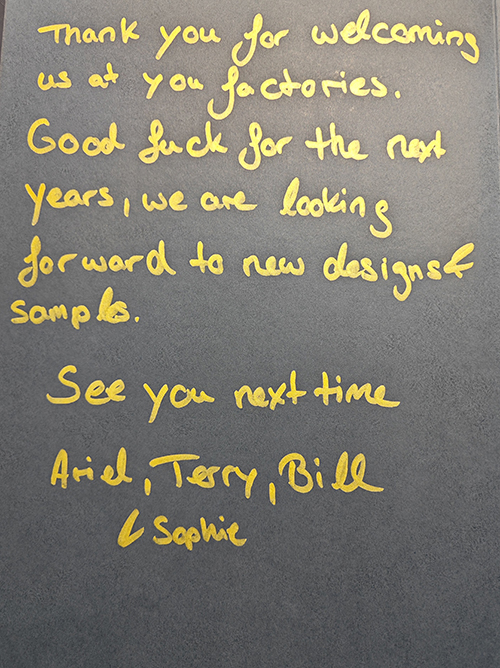 Thank you for welcoming
us at you factories.
Good luck for the next
years, we are looking
forward to new designs &
samples.
See you next time
Ariel, Terry, Bill
& Sophie